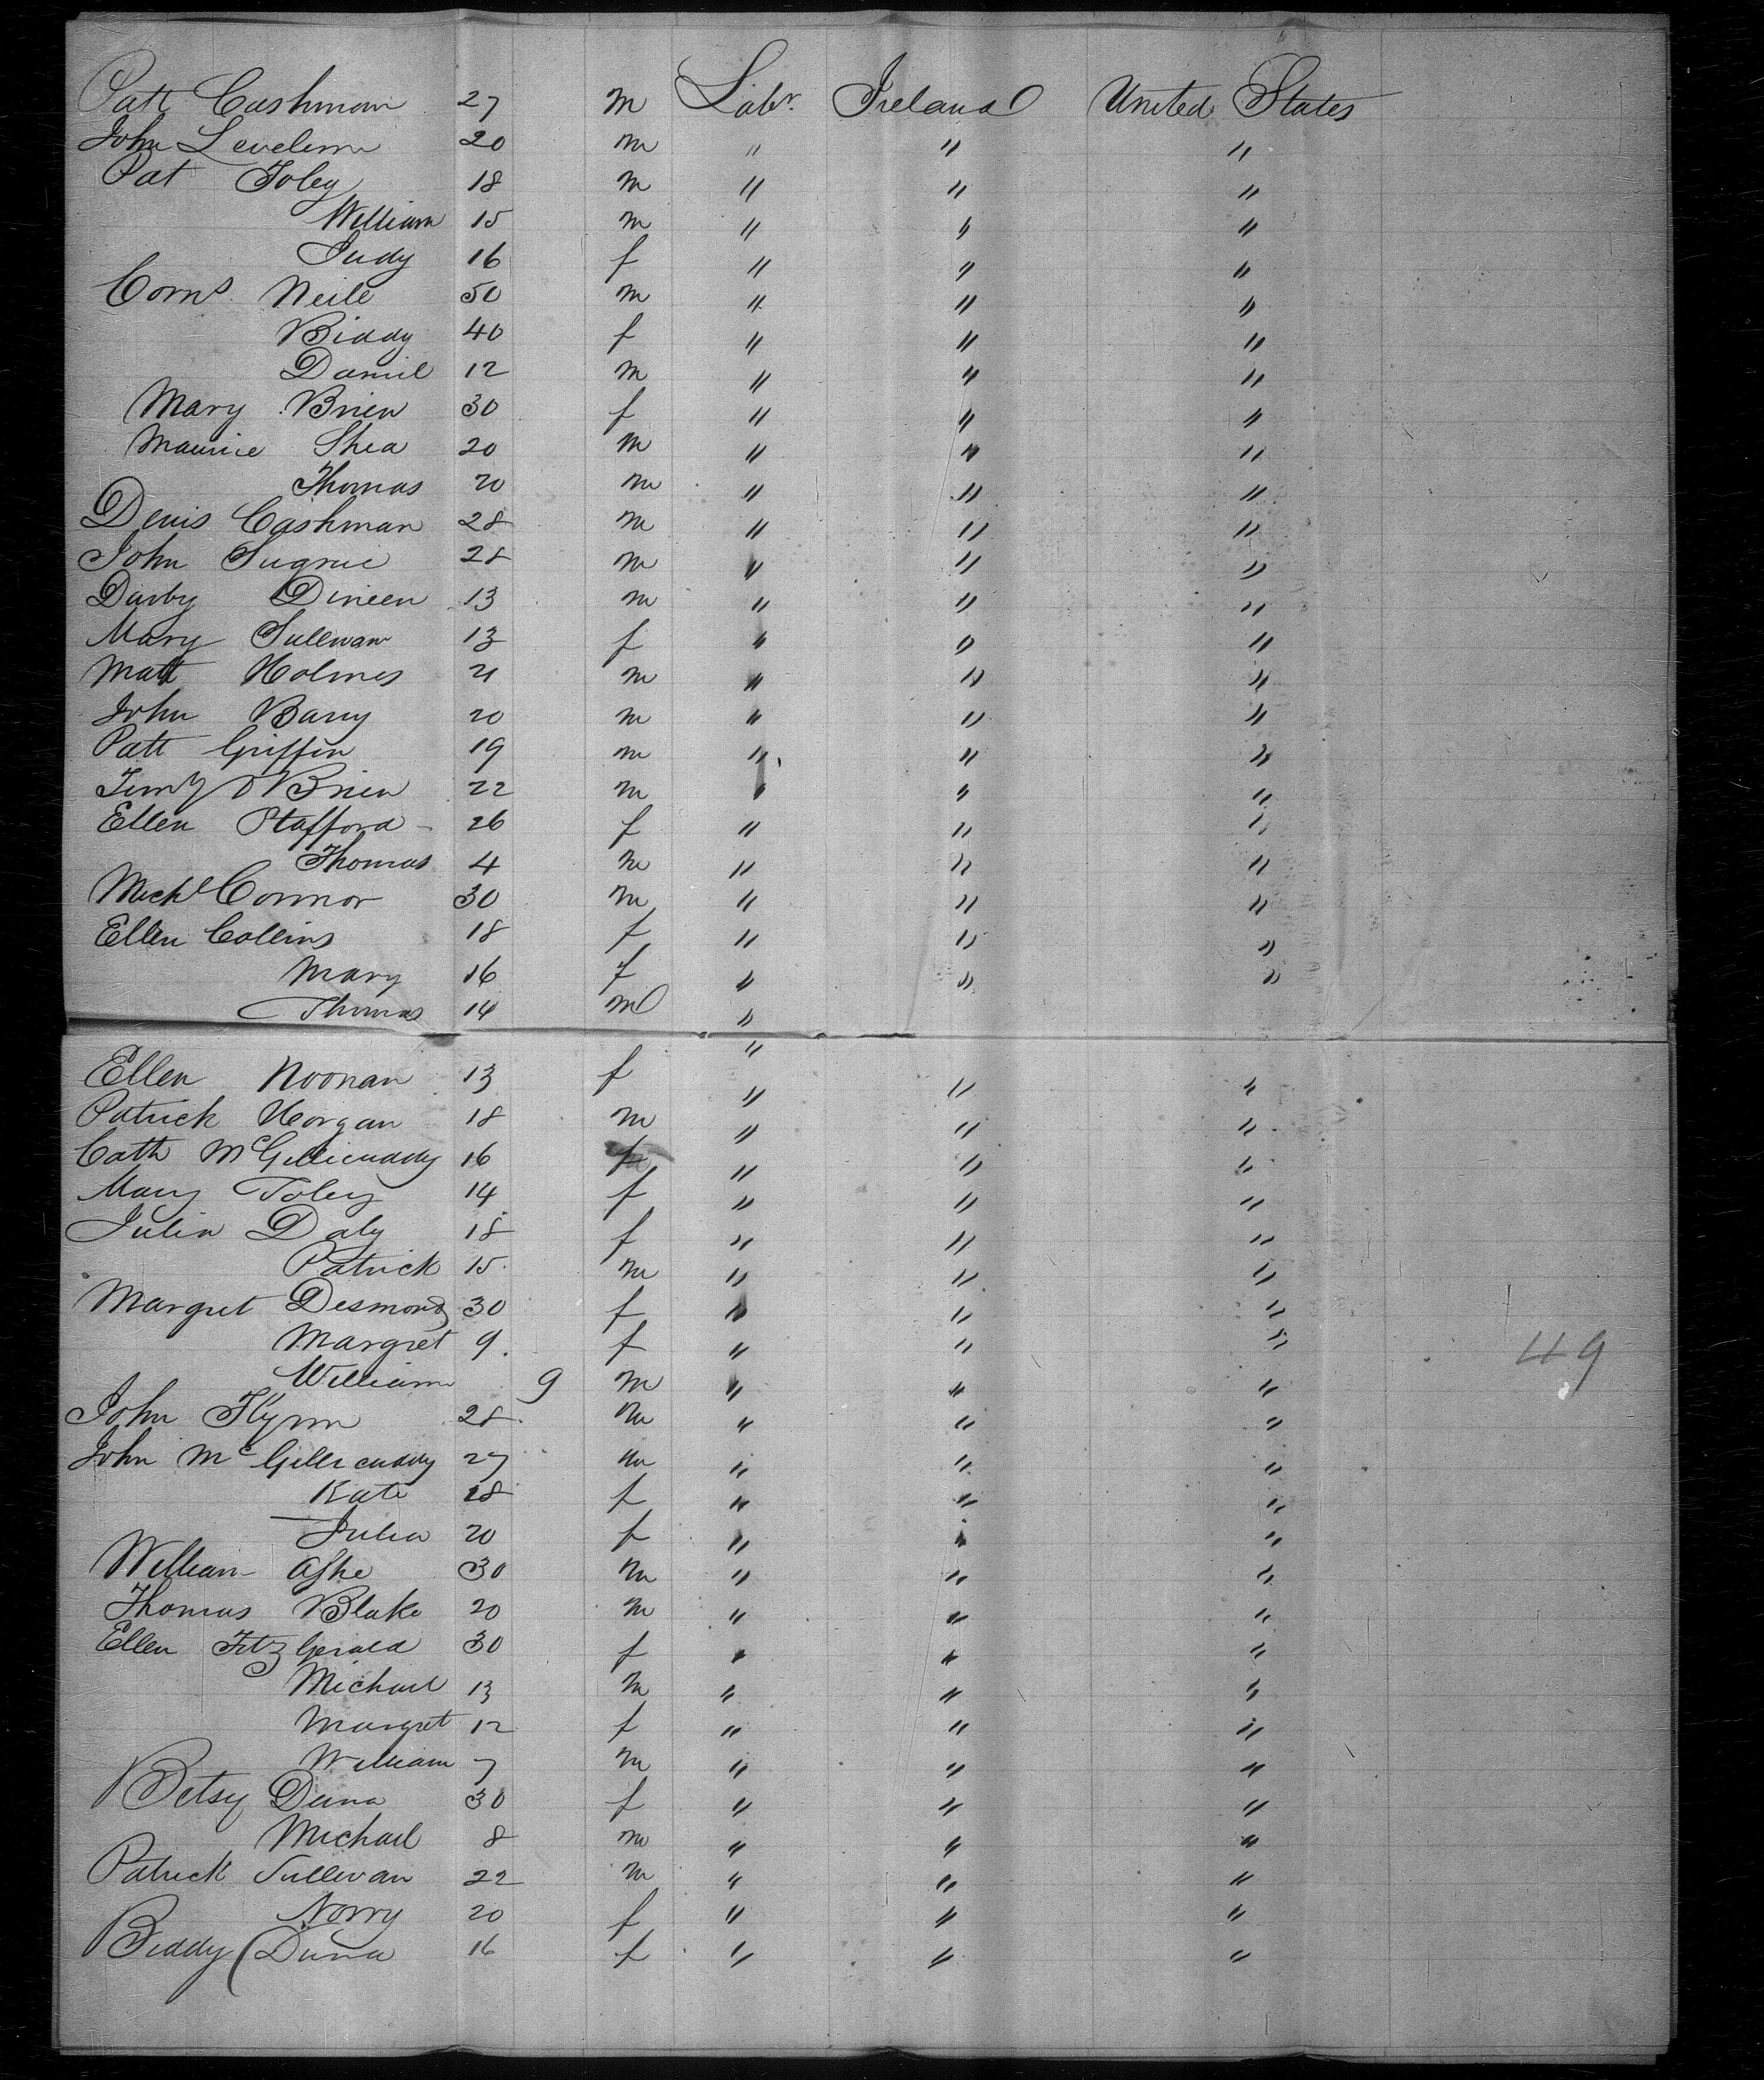 Patt Cashman 27 m Labr. Ireland United States
John 20 m " " "
Pat Foley 18 m " " "
William 15 m " " "
Judy 16 f " " "
Corns Neile 50 m " " "
Biddy 40 f " " "
Daniel 12 m " " "
Mary Brien 30 f " " "
Maurice Shea 20 m " " "
Thomas 20 m " " "
Denis Cashman 28 m " " "
John Sugrue 28 m " " "
Darby Dineen 13 m " " "
Mary Sullivan 13 f " " "
Matt Holmes 21 m " " "
John Barry 20 m " " "
Patt Griffin 19 m " " "
Timy O Brien 22 m " " "
Ellen Stafford 26 f " " "
Thomas 4 m " " "
Michl Connor 30 m " " "
Ellen Collins 18 f " " "
Mary 16 f " " "
Thomas 14 m "
"
Ellen Noonan 13 f " " "
Patrick Horgan 18 m " " "
Cath McGillicuddy 16 f " " "
Mary Foley 14 f " " "
Julia Daly 18 f " " "
Patrick 15 m " " "
Margret Desmond 30 f " " "
Margret 9 f " " " 49
William 9 m " " "
John Flynn 28 m " " "
John McGillicuddy 27 m " " "
Kate 18 f " " "
Julia 20 f " " "
William Ashe 30 m " " "
Thomas Blake 20 m " " "
Ellen Fitzgerald 30 f " " "
Michael 13 m " " "
Margret 12 f " " "
William 7 m " " "
Betsy Duna 30 f " " "
Michael 8 m " " "
Patrick Sullivan 22 m " " "
Norry 20 f " " "
Biddy Duna 16 f " " "